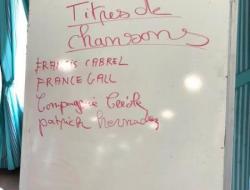 Titres de
chansons
FRANCIS CABREL
FRANCE GALL
Compagnie Créole
patrick hernandez